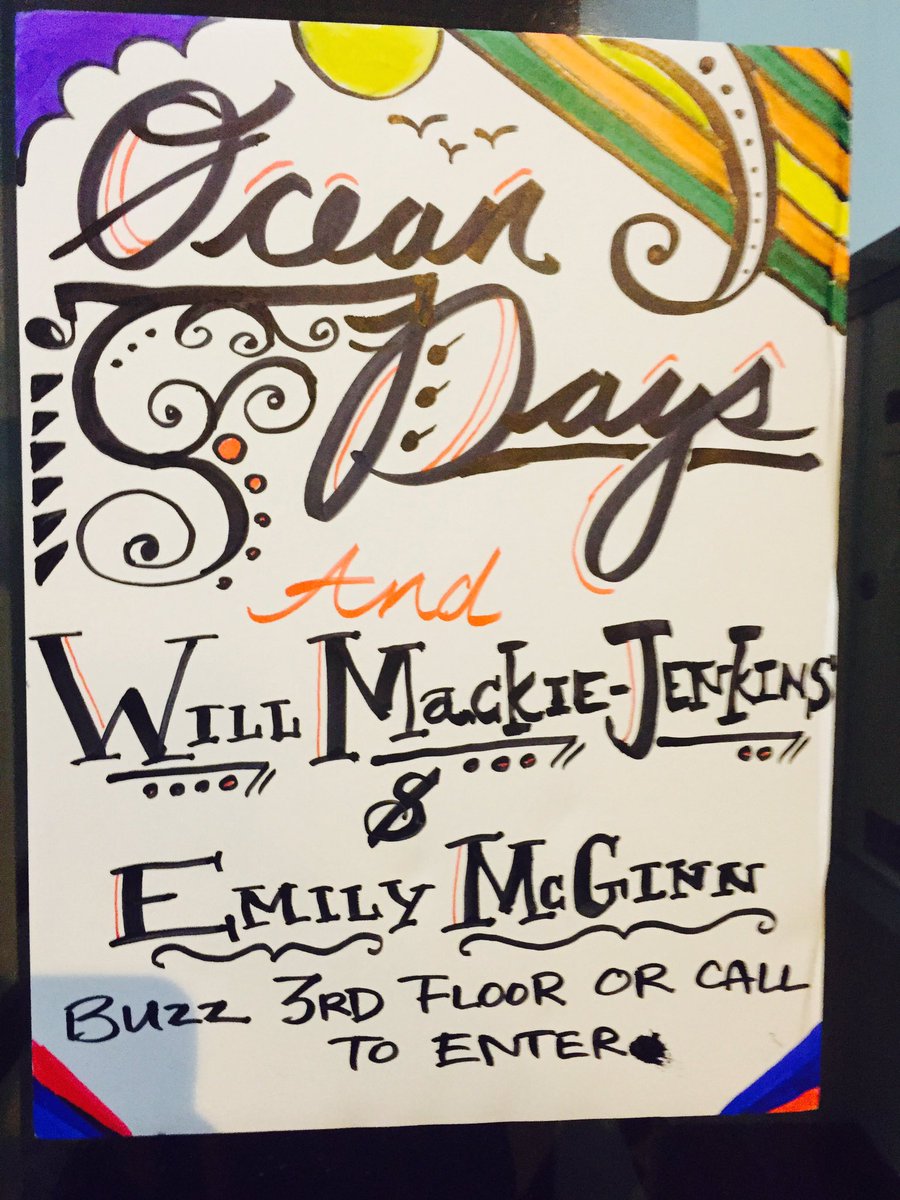 Ocean
Days
And
Will Mackie-Jenkins
&
Emily McGinn
Buzz 3rd Floor or call
to enter